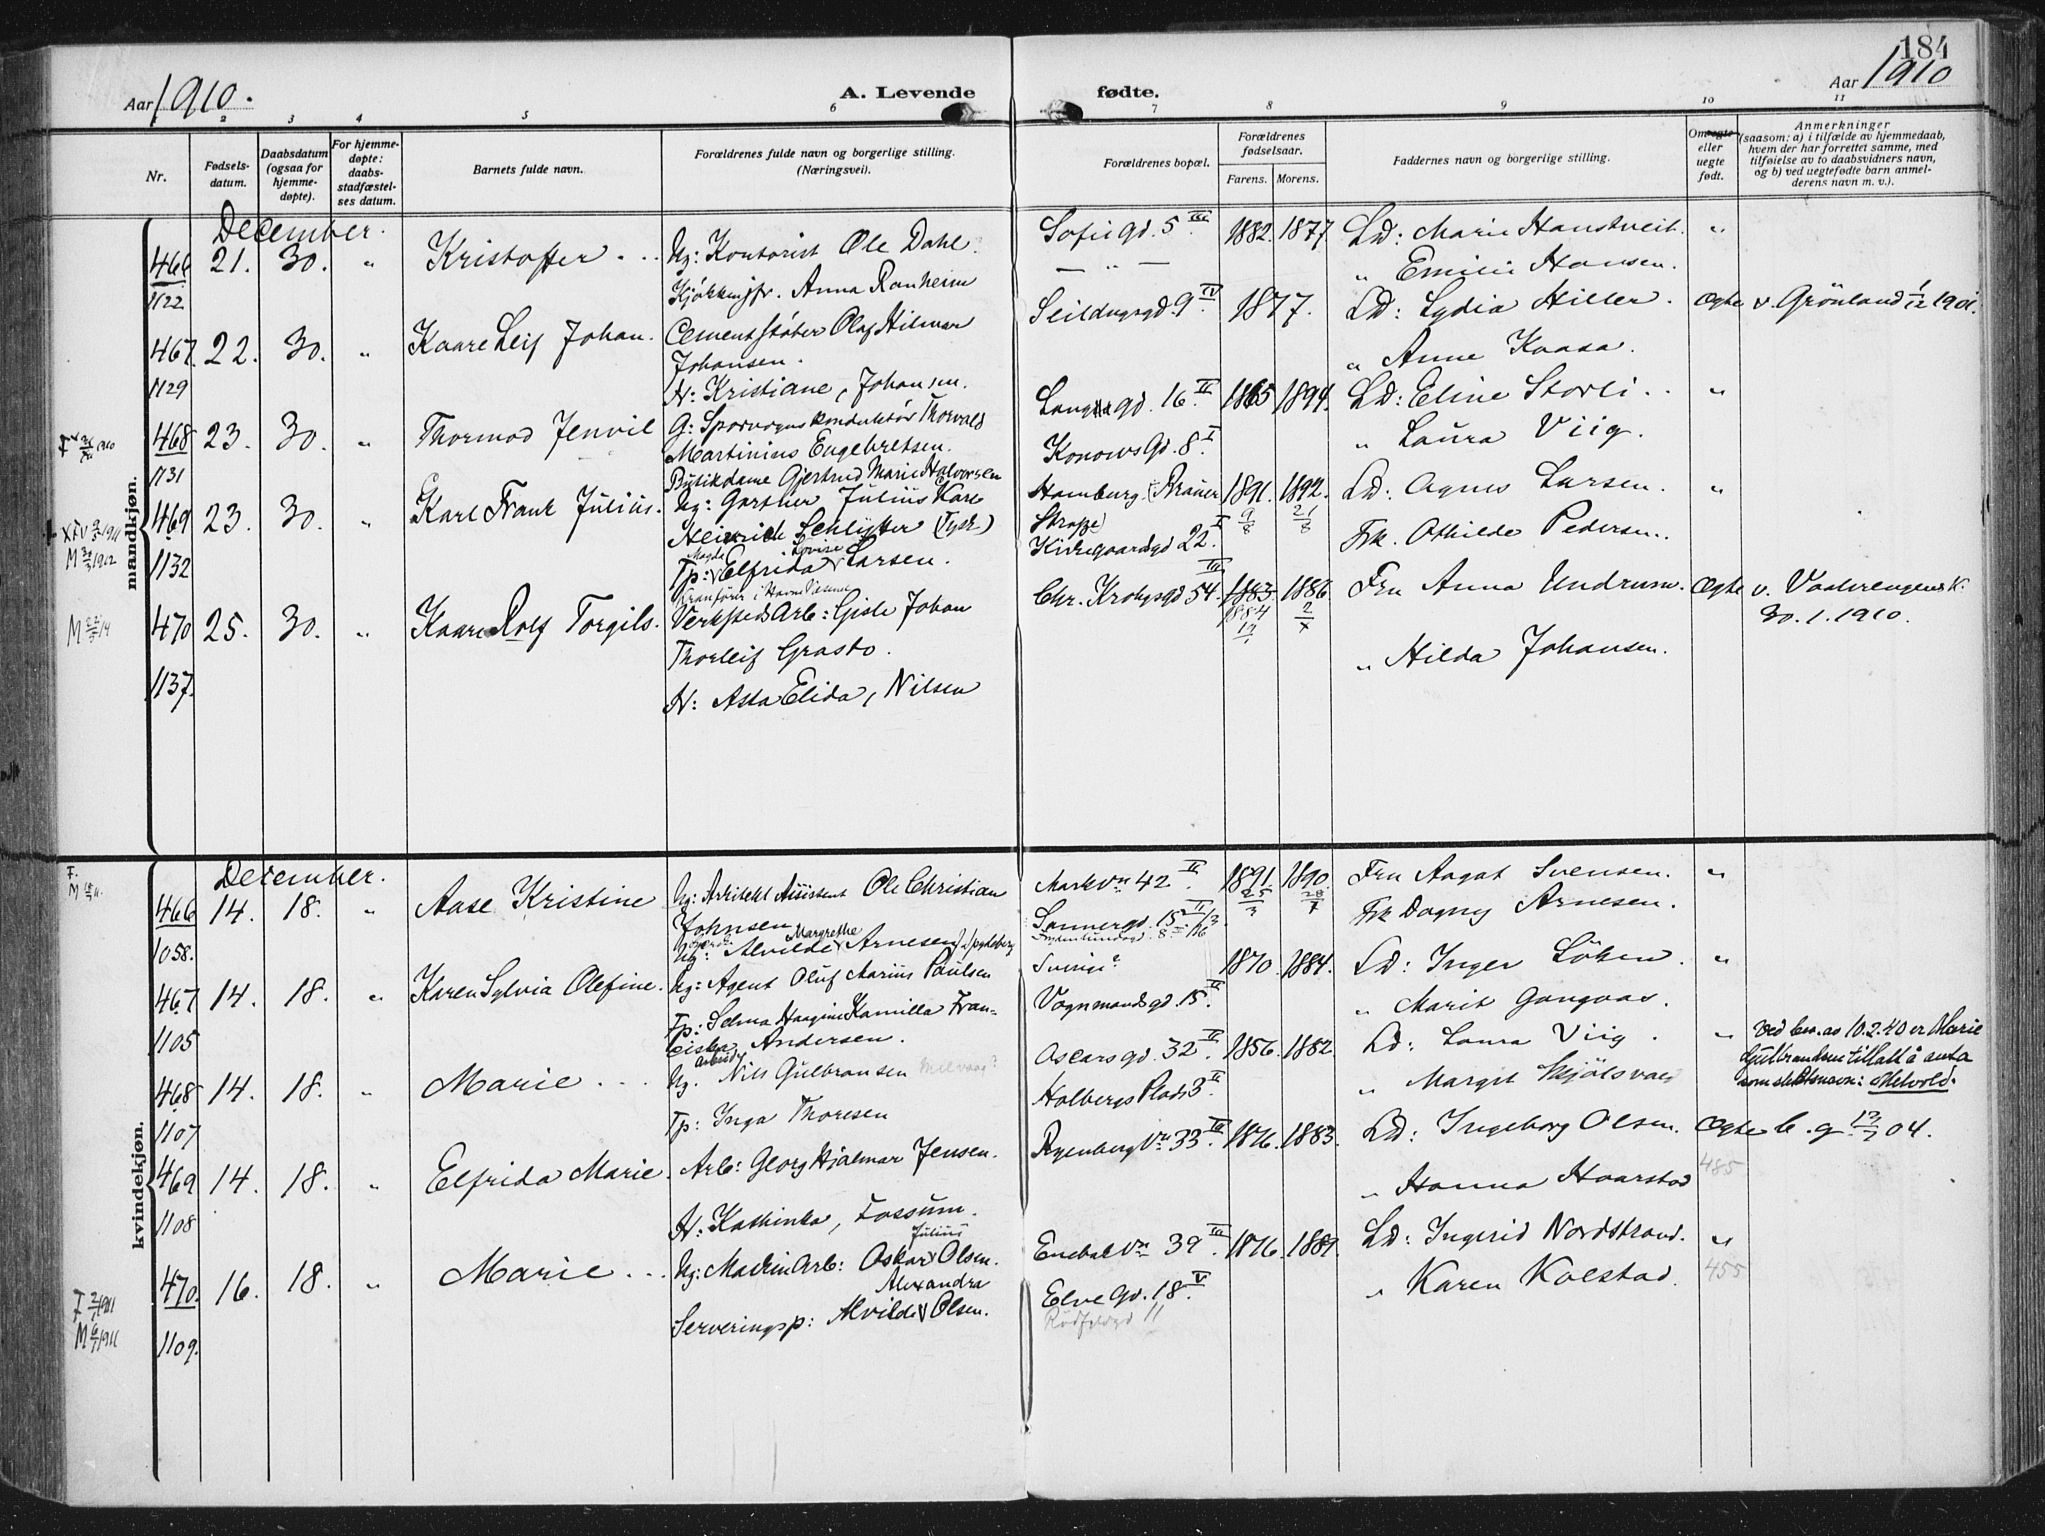 184
Aar 1910.
A. Levende
fødte.
Aar 1910
2 3 4 5 6 7 8 9 10 11
Nr.
Fødsels-
datum.
Daabsdatum
(ogsaa for
hjemme-
døpte).
For hjemme-
døpte:
daabs-
stadfæstel-
ses datum.
Barnets fulde navn.
Forældrenes fulde navn og borgerlige stilling.
(Næringsvei).
Forældrenes bopæl.
Forældrenes
fødselsaar.
Farens. Morens.
Faddernes navn og borgerlige stilling.
Om ægte
eller
uegte
født.
Anmerkninger
(saasom: a) i tilfælde av hjemmedaab,
hvem der har forrettet samme, med
tilføielse av to daabsvidners navn,
og b) ved uegtefødte barn anmel-
derens navn m. v.).
mandkjøn.
December.
466 21. 30. „ Kristoffer . . . Ug: Kontorist Ole Dahl Sofie gd. 5 III 1882. 1877 Ld: Marie Hanstveit. „
1122 Kjøkkenjfr. Anna Ronheim — „ — „ Emilie Hansen.
467. 22. 30. „ Kaare Leif Johan. Cementstøber Olaf Hilmar Seildugsgd. 9 IV 1877. Ld: Lydia Hiller. Ægte v. Grönland 1/12 1901.
Johansen. „ Anne Kaasa.
1129 H: Kristiane, Johansen.
468 23. 30. „ Thormod Jenvil G: Sporvognskonduktör Thorvald gd. 16 II 1865 1894. Ld: Eline Storli . . „
Martinius Engebretsen. Konows Gd. 8 I „ Laura Viig.
1131 Butikdame Gjertrud Marie Halvorsen
469 23. 30. „ Karl Frank Julius. Ug: Gartner Julius Karl Hamburg. (Brauer 1891. 1892. Ld: Agnes Larsen. „
Heinrich Schlytter (Tysk) Straße) 9/8 21/8 Frk. Othilde Pedersen.
1132 Tp: Elfrida Larsen. Kirkegaardsgd 22. I
Magda Lovise
Kranfører i Havnevæsenet
470 25. 30. „ Kaare Rolf Torgils. Verksteds Arb: Gisle Johan Chr. Krohgsgd 54. III 1883 1886 Fru Anna Undrum. Ægte v. Vaalerengens K.
1884 2/7 30. 1. 1910.
Thorleif Grasto. „ Hilda Johansen.
1137. H: Asta Elida, Nilsen
kvindekjøn.
December.
466 14. 18. „ Aase Kristine Ug: Arkitekt Assistent Ole Christian Markvn 42 II 1891. 1890. Fru Aagot Svensen. „
Johnsen 25/3 28/7 Frk Dagny Arnesen.
1058. Ug: Alvilde Margrethe Arnesen Sannergd. 15
467 14. 18. „ Karen Sylvia Olefine. Ug: Agent Oluf Marius Paulsen Sverige? 1870. 1884. Ld: Inger Löken. „
Tp: Selma Kamilla Fran- Vognmandsgd. 15 „ Marit Gangaas.
1105 ciska Andersen.
468 14. 18. „ Marie . . . Ug. Arbeid. Nils Gulbransen Oscarsgd. 32 II 1856. 1882. Ld: Laura Viig. „ Ved bev. av 10.2.40 er Marie
Gulbrandsen tillatt å anta
1107 Tp: Inga Thoresen Holbergs Plads 3 II „ Margit som slektsnavn: Melvold.
469 14. 18. „ Elfrida Marie. Arb: Georg Hjalmar Jensen. Ryenbergvn 33. III 1876. 1883. Ld: Ingeborg Olsen. Ægte b. g. 04.
485
1108 H: Kathinka, Fossum. „ Hanna Haarstad
470. 16. 18. „ Marie . . . Ug: Maskin Arb: Oskar Julius Olsen. Enebakvn 39 III 1876. 1889. Ld: Ingerid Nordstrand. „
455
1109. Serveringsp: Alvilde Alexandra Olsen. Elve Gd. 18 V „ Karen Kolstad.